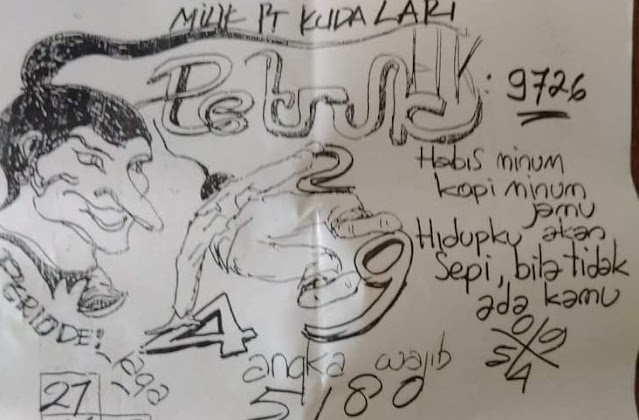 MILIK PT KUDA LARI
Petruk HK: 9726
Habis minum
kopi minum
jamu
Hidupku akan
Sepi, bila tidak
ada kamu
2
9
4
0 9
5 4
PERIODE:
Jaga
angka wajib
21
5/80